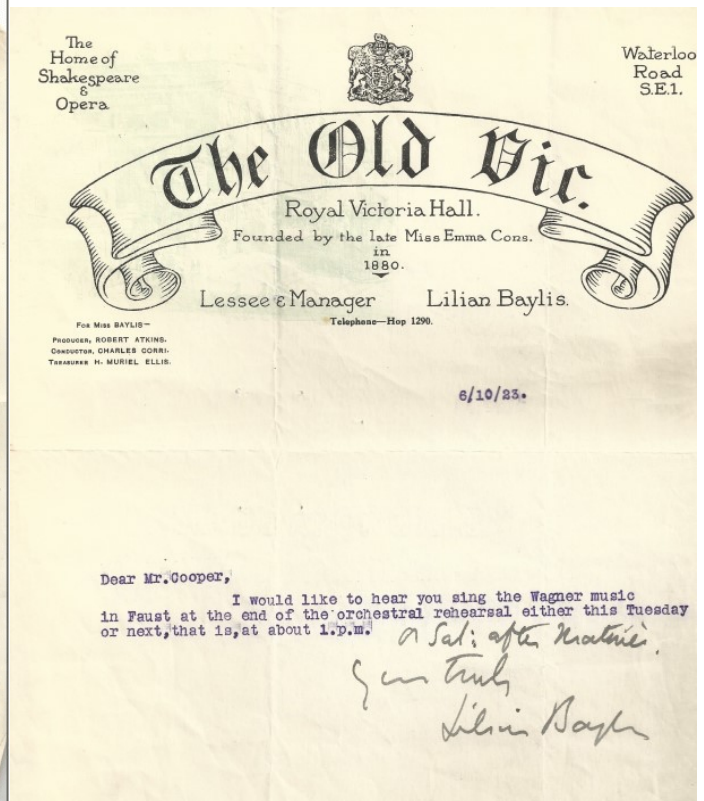 The
Home of
Shakespeare
&
Opera
Waterloo
Road
S.E.1.
The Old Vic.
Royal Victoria Hall.
Founded by the late Miss Emma Cons.
in
1880.
Lessee & Manager Lilian Baylis.
Telephone—Hop 1290.
For Miss BAYLIS—
Producer, ROBERT ATKINS.
Conductor, CHARLES CORRI.
Treasurer H. MURIEL ELLIS.
6/10/23.
Dear Mr.Cooper,
I would like to hear you sing the Wagner music
in Faust at the end of the orchestral rehearsal either this Tuesday
or next,that is,at about 1.p.m. or Sat: after Matinée.
Yours truly
Lilian Baylis